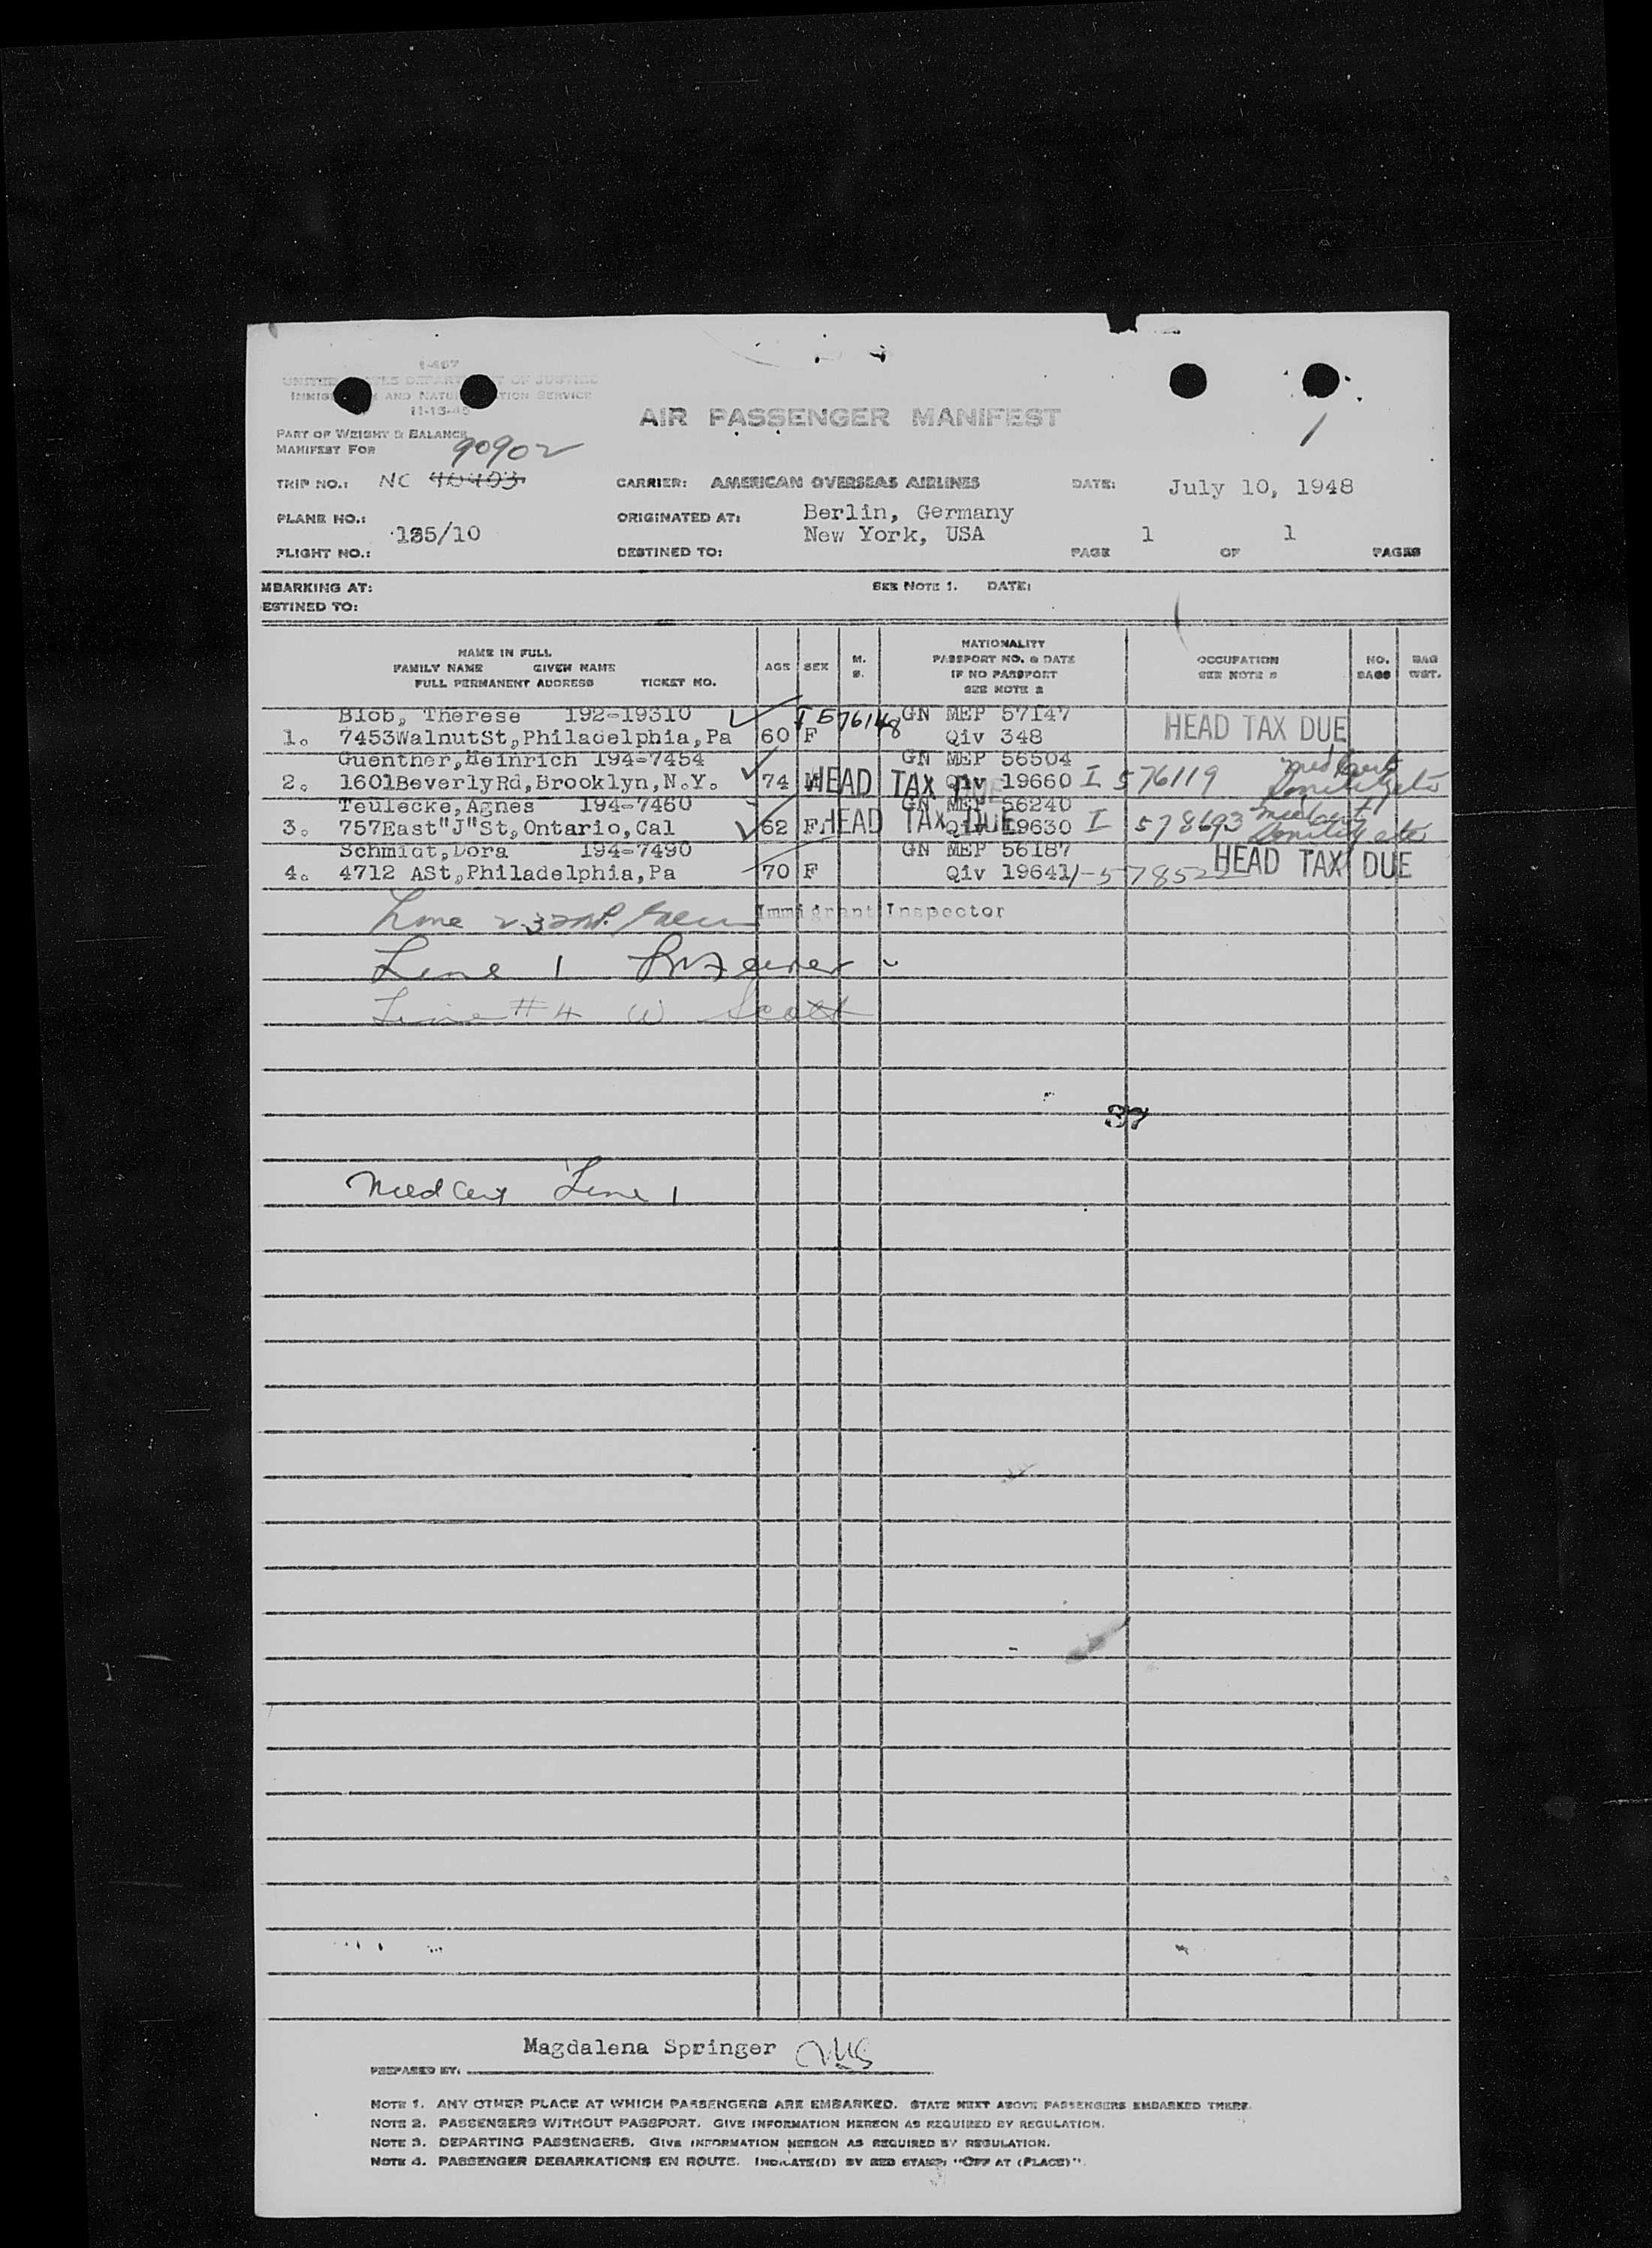 I-467
UNITED STATES DEPARTMENT OF JUSTICE
IMMIGRATION AND NATURALIZATION SERVICE
11-15-45
AIR PASSENGER MANIFEST
PART OF WEIGHT & BALANCE
MANIFEST FOR 90902
TRIP NO.: NC 40403 CARRIER: AMERICAN OVERSEAS AIRLINES DATE: July 10, 1948
PLANE NO.: ORIGINATED AT: Berlin, Germany
135/10 New York, USA 1 1
FLIGHT NO.: DESTINED TO: PAGE OF PAGES
MBARKING AT: SEE NOTE 1. DATE:
ESTINED TO:
NAME IN FULL
FAMILY NAME GIVEN NAME
FULL PERMANENT ADDRESS TICKET NO.
AGE SEX M. S.
NATIONALITY
PASSPORT NO. & DATE
IF NO PASSPORT
SEE NOTE 2
OCCUPATION
SEE NOTE 3
NO. BAGS
BAG WGT.
Blob, Therese 192-19310 I 576148 GN MEP 57147
1. 7453WalnutSt,Philadelphia,Pa 60 F Qiv 348 HEAD TAX DUE
Guenther,Heinrich 194-7454 GN MEP 56504 med cert
2. 1601BeverlyRd,Brooklyn,N.Y. 74 M HEAD TAX DUE Qiv 19660 I 576119
Teulecke,Agnes 194-7460 GN MEP 56240
3. 757East"J"St,Ontario,Cal 62 F HEAD TAX DUE Qiv 19630 I 578693 med cert
Schmidt,Dora 194-7490 GN MEP 56187
4. 4712 ASt,Philadelphia,Pa 70 F Qiv 19641 HEAD TAX DUE
Line 2-3 Immigrant Inspector
Line 1
Line #4 W Scott
37
Med Cert Line 1
Magdalena Springer MS
PREPARED BY:
NOTE 1. ANY OTHER PLACE AT WHICH PASSENGERS ARE EMBARKED. STATE NEXT ABOVE PASSENGERS EMBARKED THERE.
NOTE 2. PASSENGERS WITHOUT PASSPORT. GIVE INFORMATION HEREON AS REQUIRED BY REGULATION.
NOTE 3. DEPARTING PASSENGERS. GIVE INFORMATION HEREON AS REQUIRED BY REGULATION.
NOTE 4. PASSENGER DEBARKATIONS EN ROUTE. INDICATE(D) BY RED STAMP: "OFF AT (PLACE)".